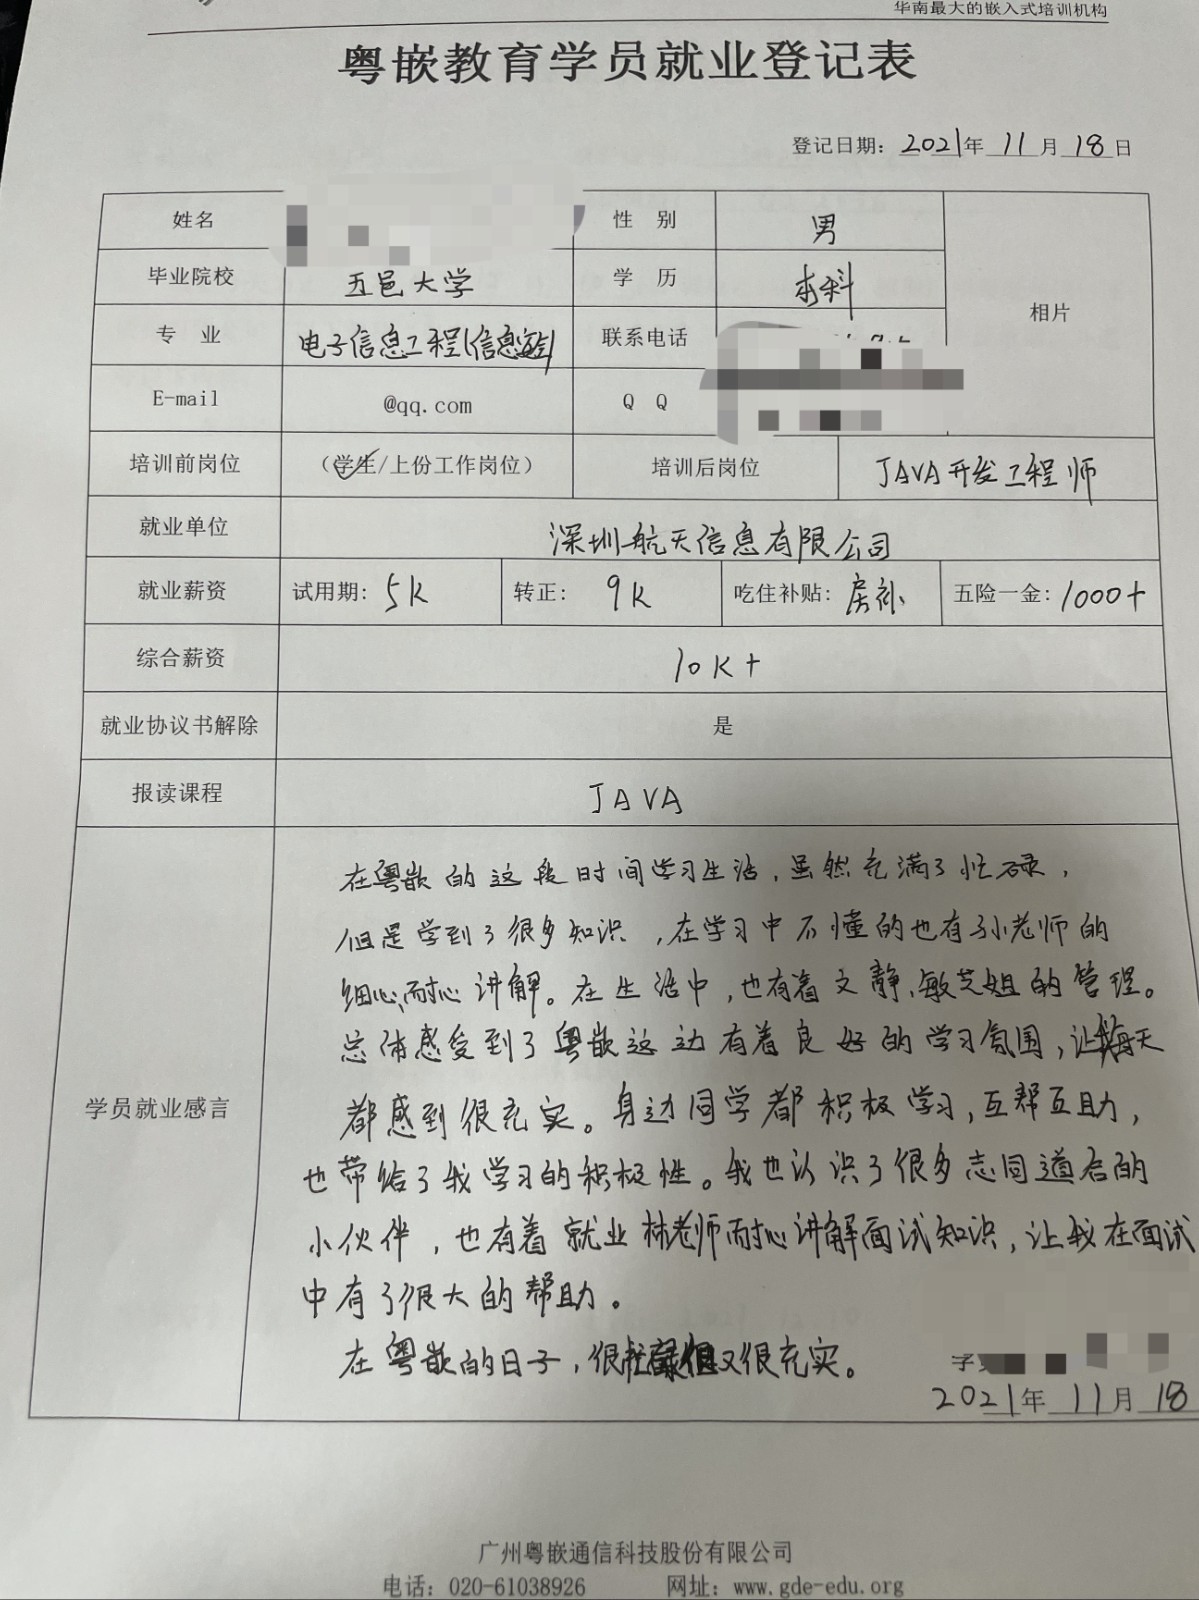 华南最大的嵌入式培训机构
粤嵌教育学员就业登记表
登记日期: 2021年 11 月 18 日
姓名 性 别 男
毕业院校 五邑大学 学 历 本科
相片
专 业 电子信息工程(信息 联系电话
E-mail @qq.com Q Q
培训前岗位 (学生/上份工作岗位) 培训后岗位 JAVA开发工程师
就业单位 深圳航天信息有限公司
就业薪资 试用期: 5k 转正: 9k 吃住补贴: 房补 五险一金: 1000+
综合薪资 10K+
就业协议书解除 是
报读课程 JAVA
学员就业感言
在粤嵌的这段时间学习生活,虽然充满了忙碌,
但是学到了很多知识,在学习中不懂的也有孙老师的
细心、耐心讲解。在生活中,也有着文静、敏芝姐的管理。
总体感受到了粤嵌这边有着良好的学习氛围,让我每天
都感到很充实。身边同学都积极学习,互帮互助,
也带给了我学习的积极性。我也认识了很多志同道合的
小伙伴,也有着就业林老师耐心讲解面试知识,让我在面试
中有了很大的帮助。
在粤嵌的日子,很忙碌但又很充实。
学
2021年 11月 18
广州粤嵌通信科技股份有限公司
电话: 020-61038926 网址: www.gde-edu.org